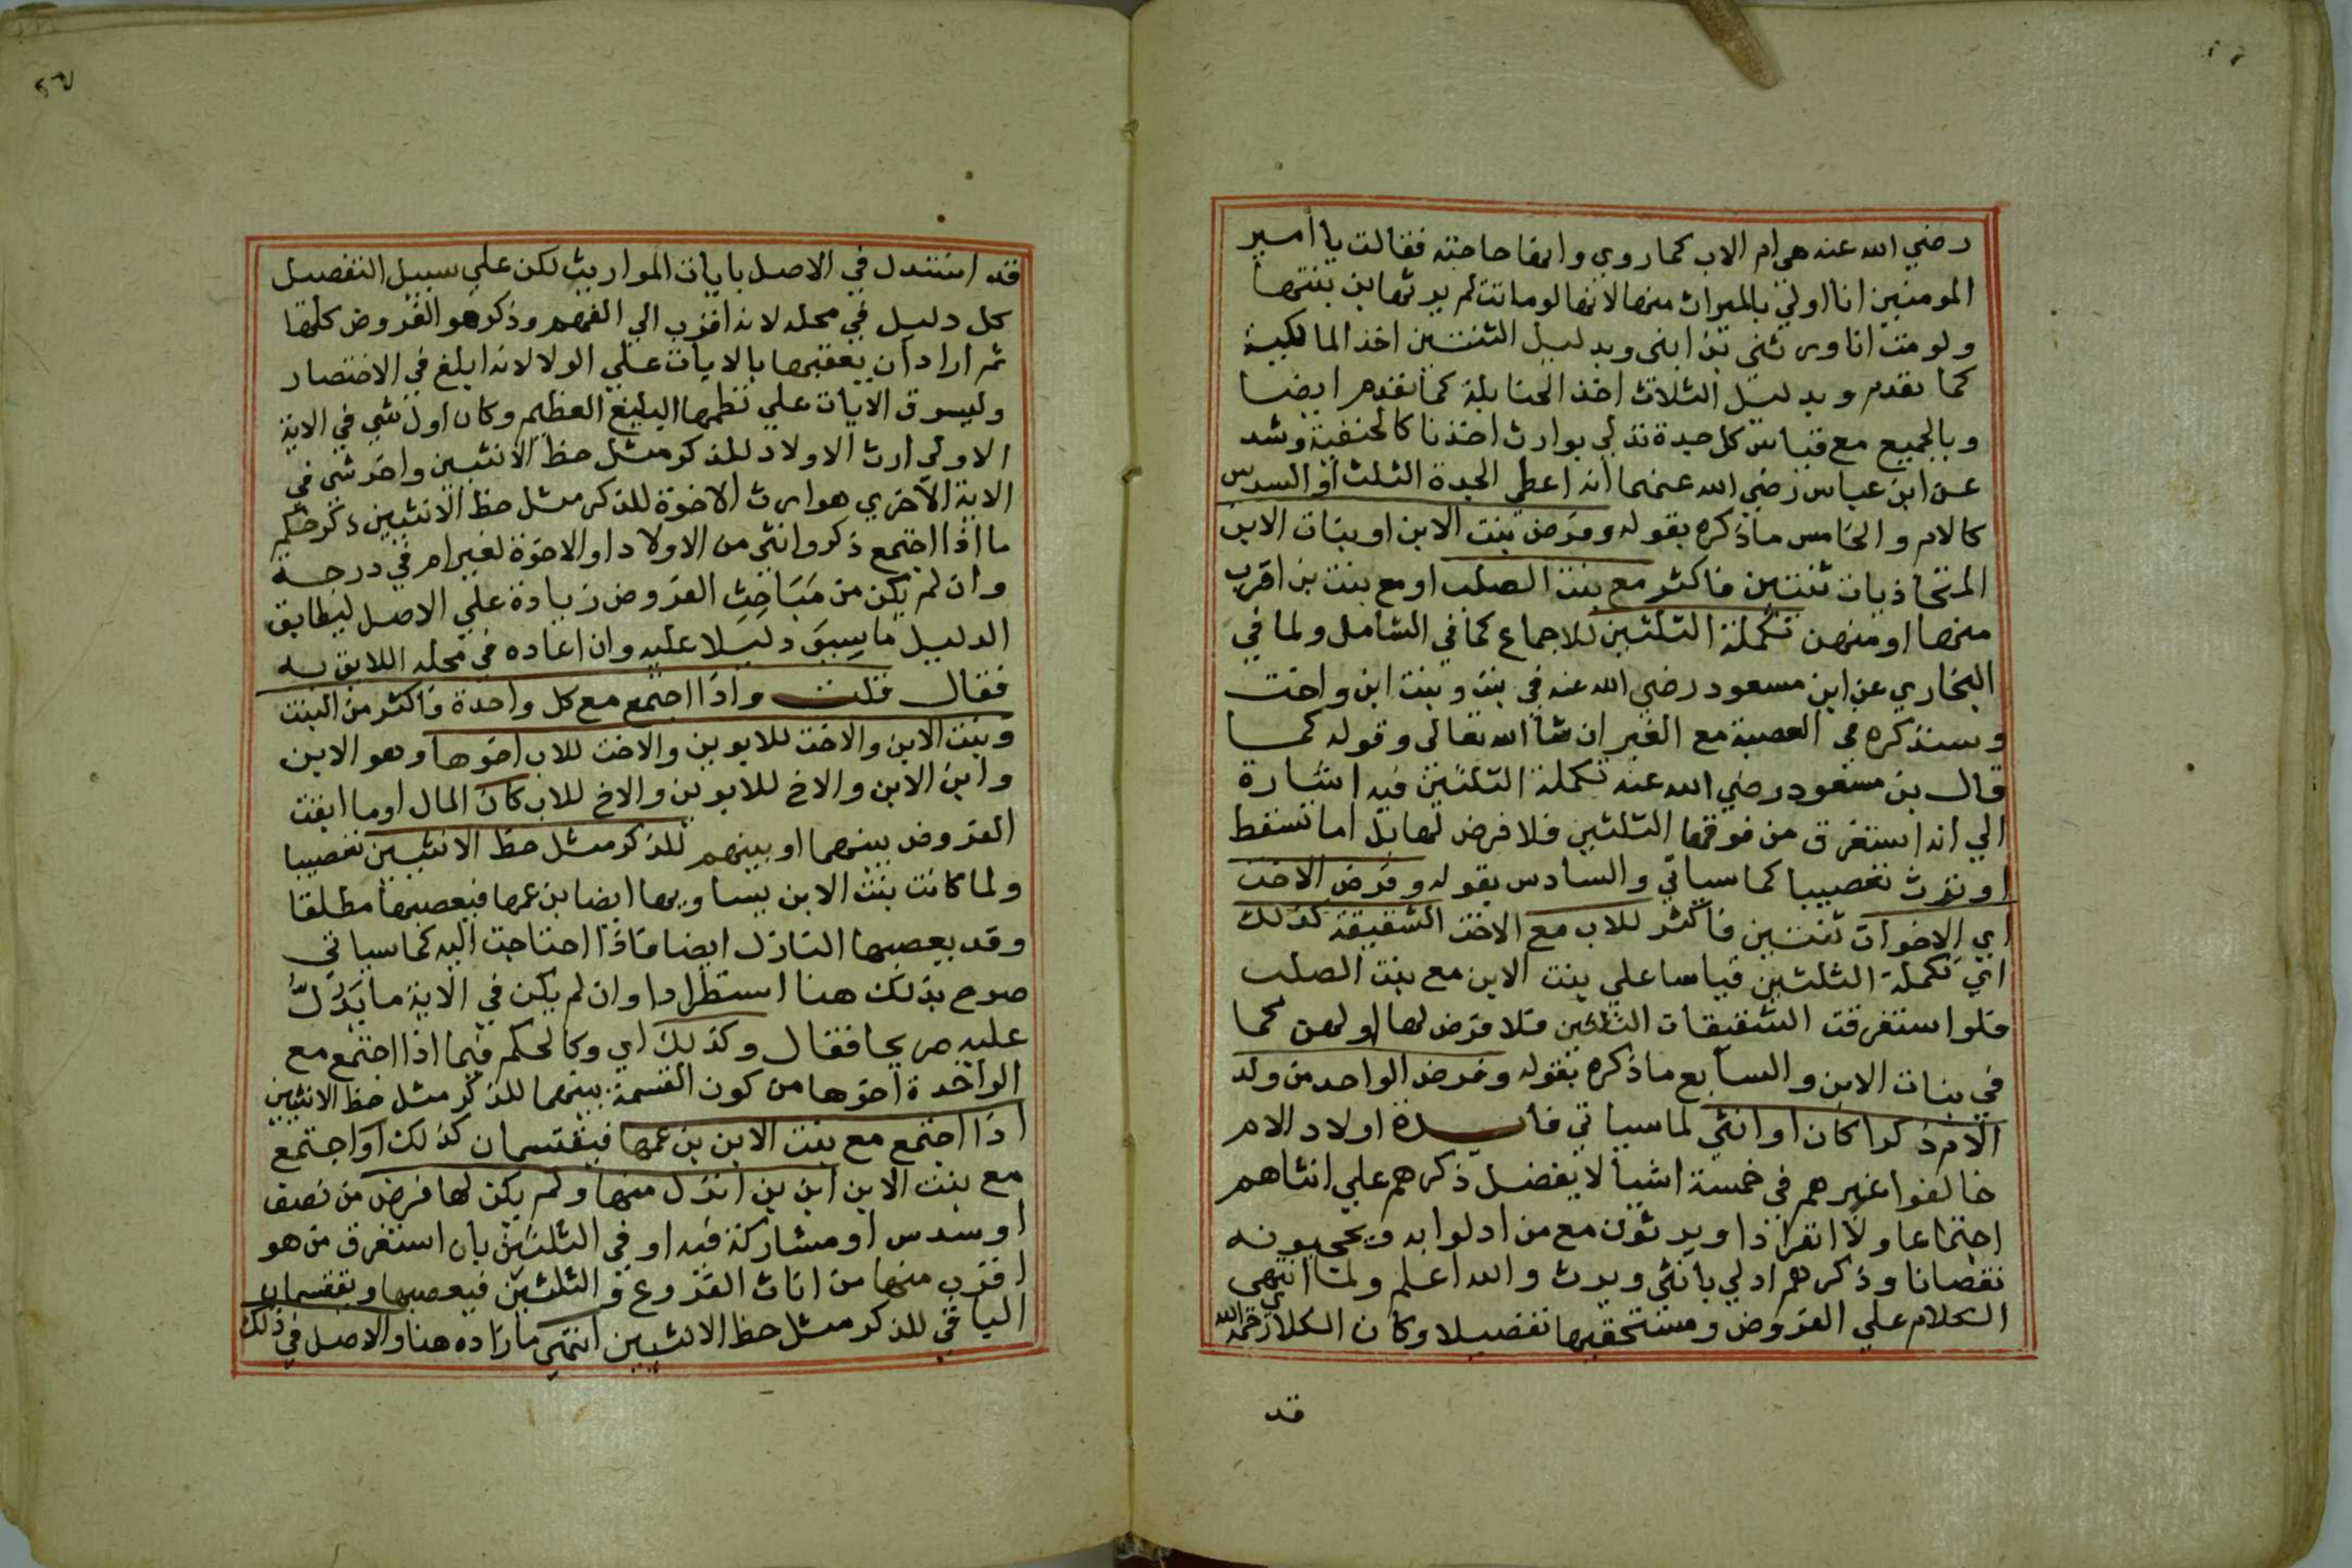 رضي الله عنه هي ام الاب كما روي وانها جاءته فقالت يا امير
المومنين انا اولي بالميراث منها لانها لو ماتت لم يرثها بن بنتها
ولو مت انا ورثني بن ابني وبدليل الثنتين اخذ المالكية
كما تقدم وبدليل الثلاث اخذ الحنابلة كما تقدم ايضا
وبالجميع مع قياس كل جدة تدلي بوارث اخذنا كالحنفية وشد
عن ابن عباس رضي الله عنهما انه اعطي الجدة الثلث او السدس
كالام والخامس ماذكره بقوله وفرض بنت الابن او بنات الابن
المتحاذيات ثنتين فاكثر مع بنت الصلب او مع بنت بن اقرب
منها او منهن تكملة الثلثين للاجماع كما في الشامل ولما في
البخاري عن ابن مسعود رضي الله عنه في بنت وبنت ابن واخت
وسنذكره في العصبة مع الغير ان شا الله تعالى وقوله كما
قال بن مسعود رضي الله عنه تكملة الثلثين فيه اشارة
الي انه استغرق من فوقها الثلثين فلا فرض لها بل اما تسقط
او ترث تعصيبا كما سياتي والسادس بقوله وفرض الاخت
اي الاخوات ثنتين فاكثر للاب مع الاخت الشقيقة كذلك
اي تكملة الثلثين قياسا علي بنت الابن مع بنت الصلب
فلو استغرقت الشقيقات الثلثين فلا فرض لها او لهن كما
في بنات الابن والسابع ماذكره بقوله وفرض الواحد من ولد
الام ذكرا كان او انثي لما سياتي فايدة اولاد الام
خالفوا غيرهم في خمسة اشيا لا يفضل ذكرهم علي انثاهم
اجتماعا ولا انفرادا ويرثون مع من ادلوا به ويحجبونه
نقصانا وذكرهم ادلي بانثي ويرث والله اعلم ولما انتهى
الكلام علي الفروض ومستحقيها تفصيلا وكان الكلاي رحمه الله
قد
قد استدل في الاصل بايات المواريث لكن علي سبيل التفصيل
كل دليل في محله لانه اقرب الي الفهم وذكر هو الفروض كلها
ثم اراد ان يعقبها بالايات علي الولا لانه ابلغ في الاختصار
وليسوق الايات علي نظمها البليغ العظيم وكان اول شي في الاية
الاولي ارث الاولاد للذكر مثل حظ الانثيين واخر شي في
الاية الاخري هو ارث الاخوة للذكر مثل حظ الانثيين ذكر حكم
ما اذا اجتمع ذكر وانثي من الاولاد او الاخوة لغير ام في درجة
وان لم يكن من مباحث الفروض زيادة علي الاصل ليطابق
الدليل ما سيق دليلا عليه وان اعاده في محله اللايق به
فقال قلت واذا اجتمع مع كل واحدة واكثر من البنت
وبنت الابن والاخت للابوين والاخت للاب اخوها وهو الابن
وابن الابن والاخ للابوين والاخ للاب كان المال او ما ابقت
الفروض بينهما او بينهم للذكر مثل حظ الانثيين تعصيبا
ولما كانت بنت الابن يساويها ايضا بن عمها فيعصبها مطلقا
وقد يعصبها النازل ايضا فاذا احتاجت اليه كما سياتي
صرح بذلك هنا استطرادا وان لم يكن في الاية ما يدل
عليه صريحا فقال وكذلك اي وكالحكم فيما اذا اجتمع مع
الواحدة اخوها من كون القسمة بينهما للذكر مثل حظ الانثيين
اذا اجتمع مع بنت الابن بن عمها فيقتسمان كذلك او اجتمع
مع بنت الابن ابن بن انزل منها ولم يكن لها فرض من نصف
او سدس او مشاركة فيه او في الثلثين بان استغرق من هو
اقرب منها من اناث الفروع والثلثين فيعصبها ويقتسمان
الباقي للذكر مثل حظ الانثيين انتهي ما زاده هنا والاصل في ذلك